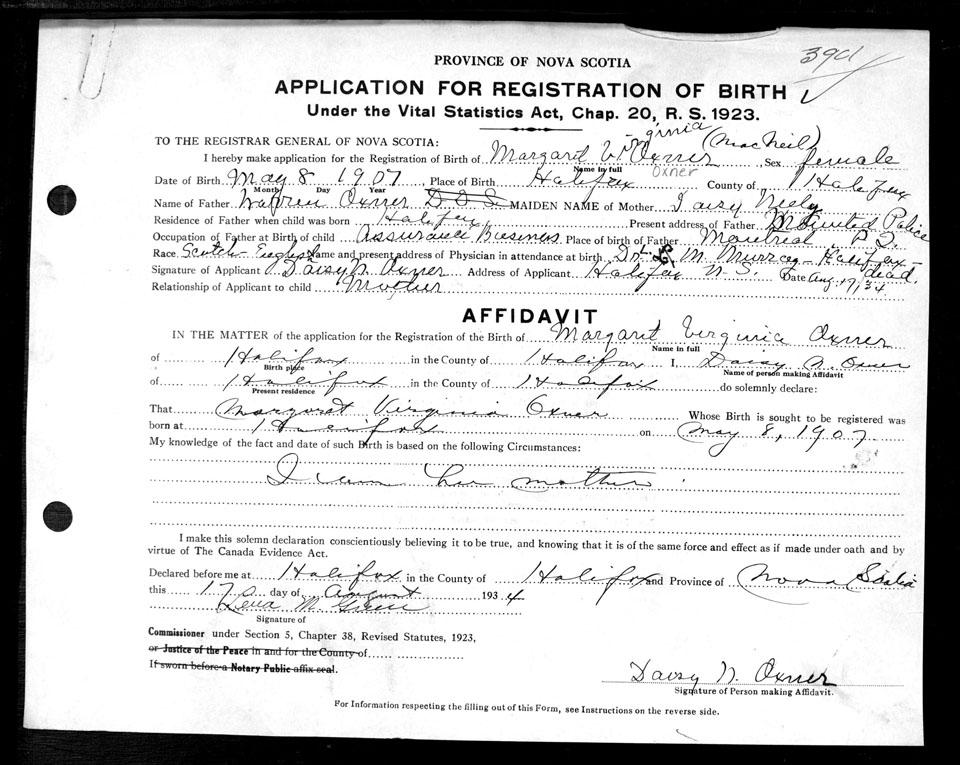 3901
PROVINCE OF NOVA SCOTIA
APPLICATION FOR REGISTRATION OF BIRTH
Under the Vital Statistics Act, Chap. 20, R. S. 1923.
TO THE REGISTRAR GENERAL OF NOVA SCOTIA:
I hereby make application for the Registration of Birth of Margaret Virginia Oxner (MacNeil) Sex female
Name in full Oxner
Date of Birth May 8 1907 Place of Birth Halifax County of Halifax
Month Day Year
Name of Father Warren Oxner MAIDEN NAME of Mother Daisy Neely
Residence of Father when child was born Halifax Present address of Father Mounted Police
Occupation of Father at Birth of child Assurance Business Place of birth of Father Montreal P.Q.
Race Scotch-English Name and present address of Physician in attendance at birth Dr. L. M. Murray - Halifax - dead.
Signature of Applicant Daisy N. Oxner Address of Applicant Halifax N.S. Date Aug. 17, 34
Relationship of Applicant to child Mother
AFFIDAVIT
IN THE MATTER of the application for the Registration of the Birth of Margaret Virginia Oxner
Name in full
of Halifax in the County of Halifax I, Daisy N. Oxner
Birth place Name of person making Affidavit
of Halifax in the County of Halifax do solemnly declare:
Present residence
That Margaret Virginia Oxner Whose Birth is sought to be registered was
born at Halifax on May 8, 1907
My knowledge of the fact and date of such Birth is based on the following Circumstances:
I am her mother
I make this solemn declaration conscientiously believing it to be true, and knowing that it is of the same force and effect as if made under oath and by
virtue of The Canada Evidence Act.
Declared before me at Halifax in the County of Halifax and Province of Nova Scotia
this 17 day of August 1934
Lena M. Green
Signature of
Commissioner under Section 5, Chapter 38, Revised Statutes, 1923,
or Justice of the Peace in and for the County of
If sworn before a Notary Public affix seal.
Daisy N. Oxner
Signature of Person making Affidavit.
For Information respecting the filling out of this Form, see Instructions on the reverse side.